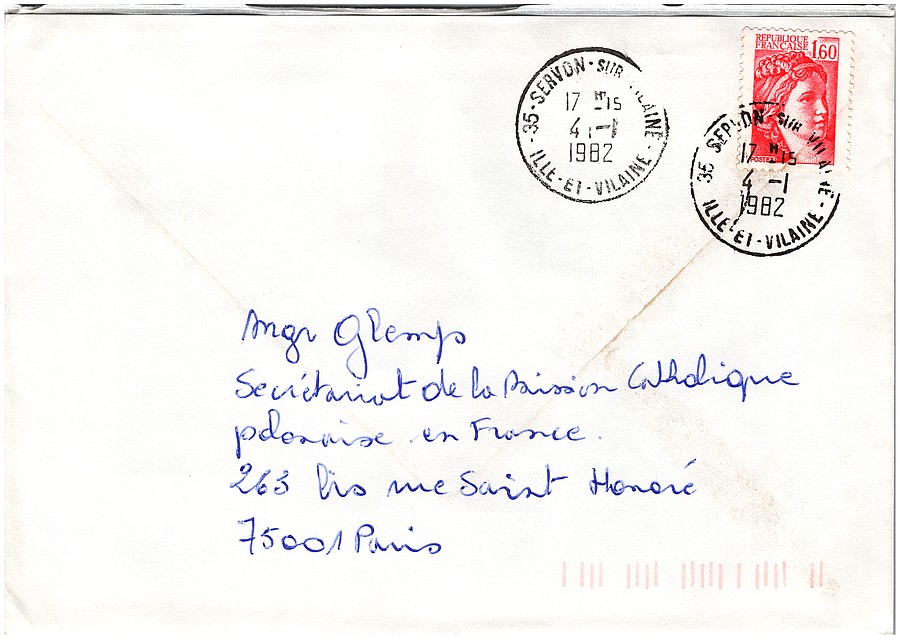 RÉPUBLIQUE
FRANÇAISE 1,60
POSTES
35 - SERVON - SUR VILAINE - ILLE - ET - VILAINE -
17 H -15
4 -1
1982
35 SERVON - SUR VILAINE - ILLE - ET - VILAINE -
17 H -15
4 -1
1982
Mgr Glemp
Secrétariat de la Mission Catholique
polonaise en France.
263 bis rue Saint Honoré
75001 Paris